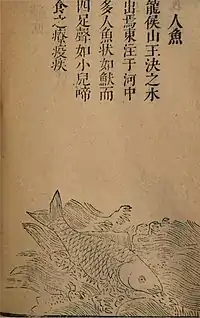 人魚
龍侯山王決之水
出焉東注于河中
多人魚狀如䱱而
四足聲如小兒啼
食之療疫疾